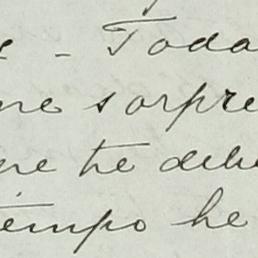 - Toda
me sorpre
te debe
tempo he